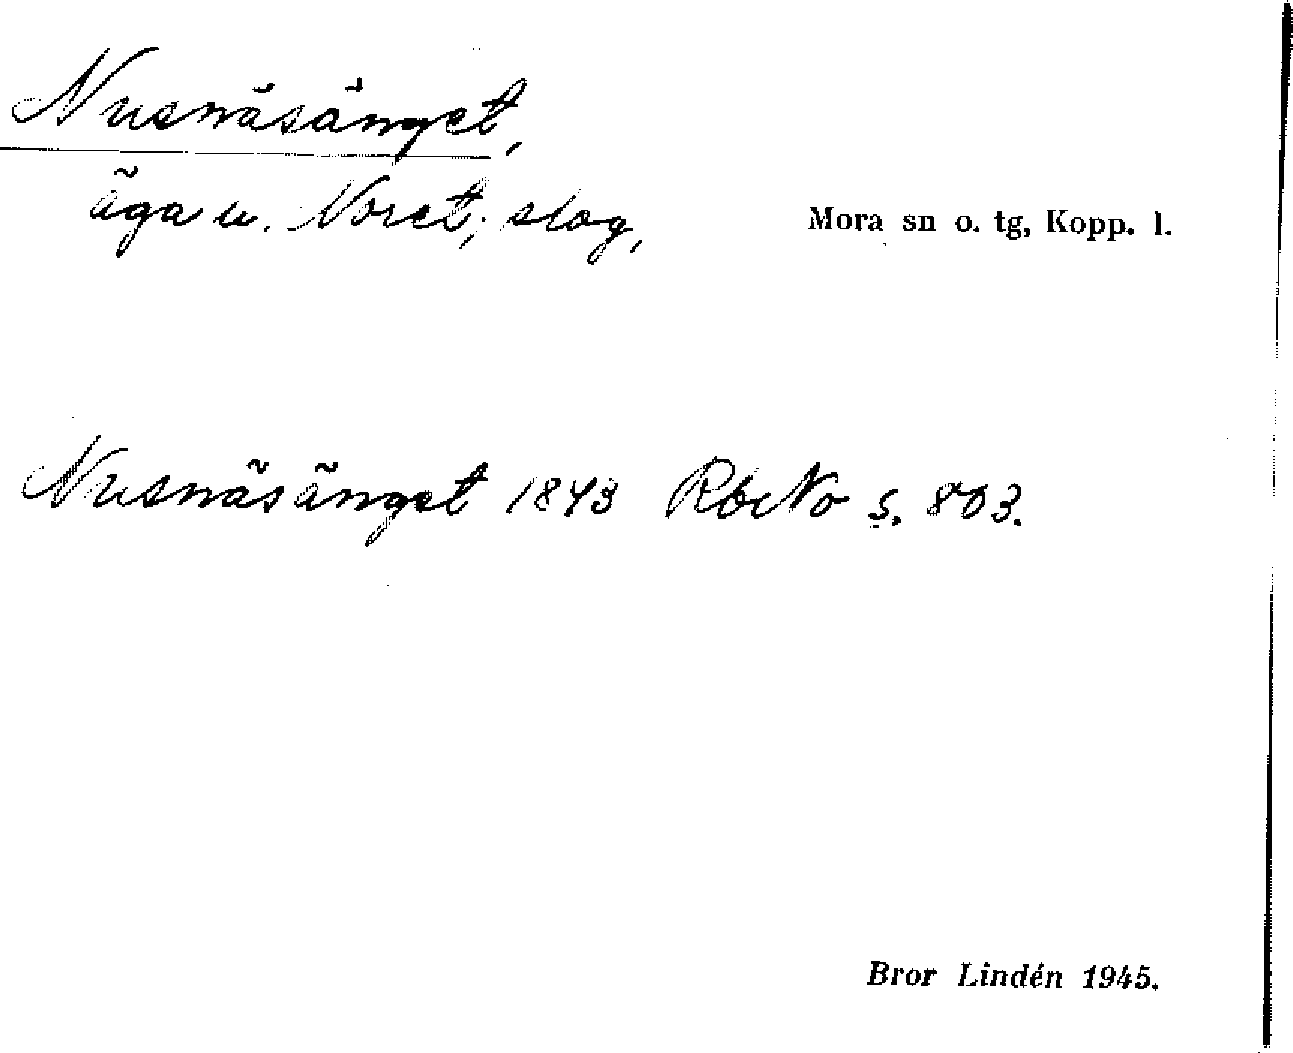 Nusnäsänget,
äga u. Noret; slog,
Mora sn o. tg, Kopp. l.
Nusnäsänget 1843 RbcNo s. 803.
Bror Lindén 1945.